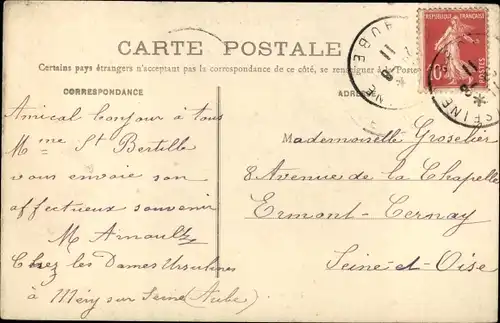 CARTE POSTALE
Certains pays étrangers n'acceptant pas la correspondance de ce côté, se renseigner à la Poste
CORRESPONDANCE
ADRESSE
Amical bonjour à tous
Mme St Bertille
vous envoie son
affectueux souvenir
M Arnault
Chez les Dames Ursulines
à Méry sur Seine (Aube)
Mademoiselle Groselier
8 Avenue de la Chapelle
Ermont-Cernay
Seine-et-Oise
REPUBLIQUE FRANÇAISE
POSTES
AUBE
11
SEINE
11